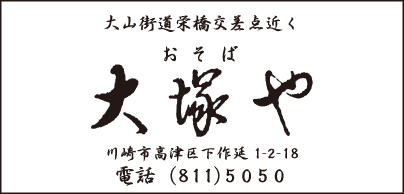 大山街道栄橋交差点近く
おそば
大塚や
川崎市高津区下作延 1-2-18
電話 (811)5050